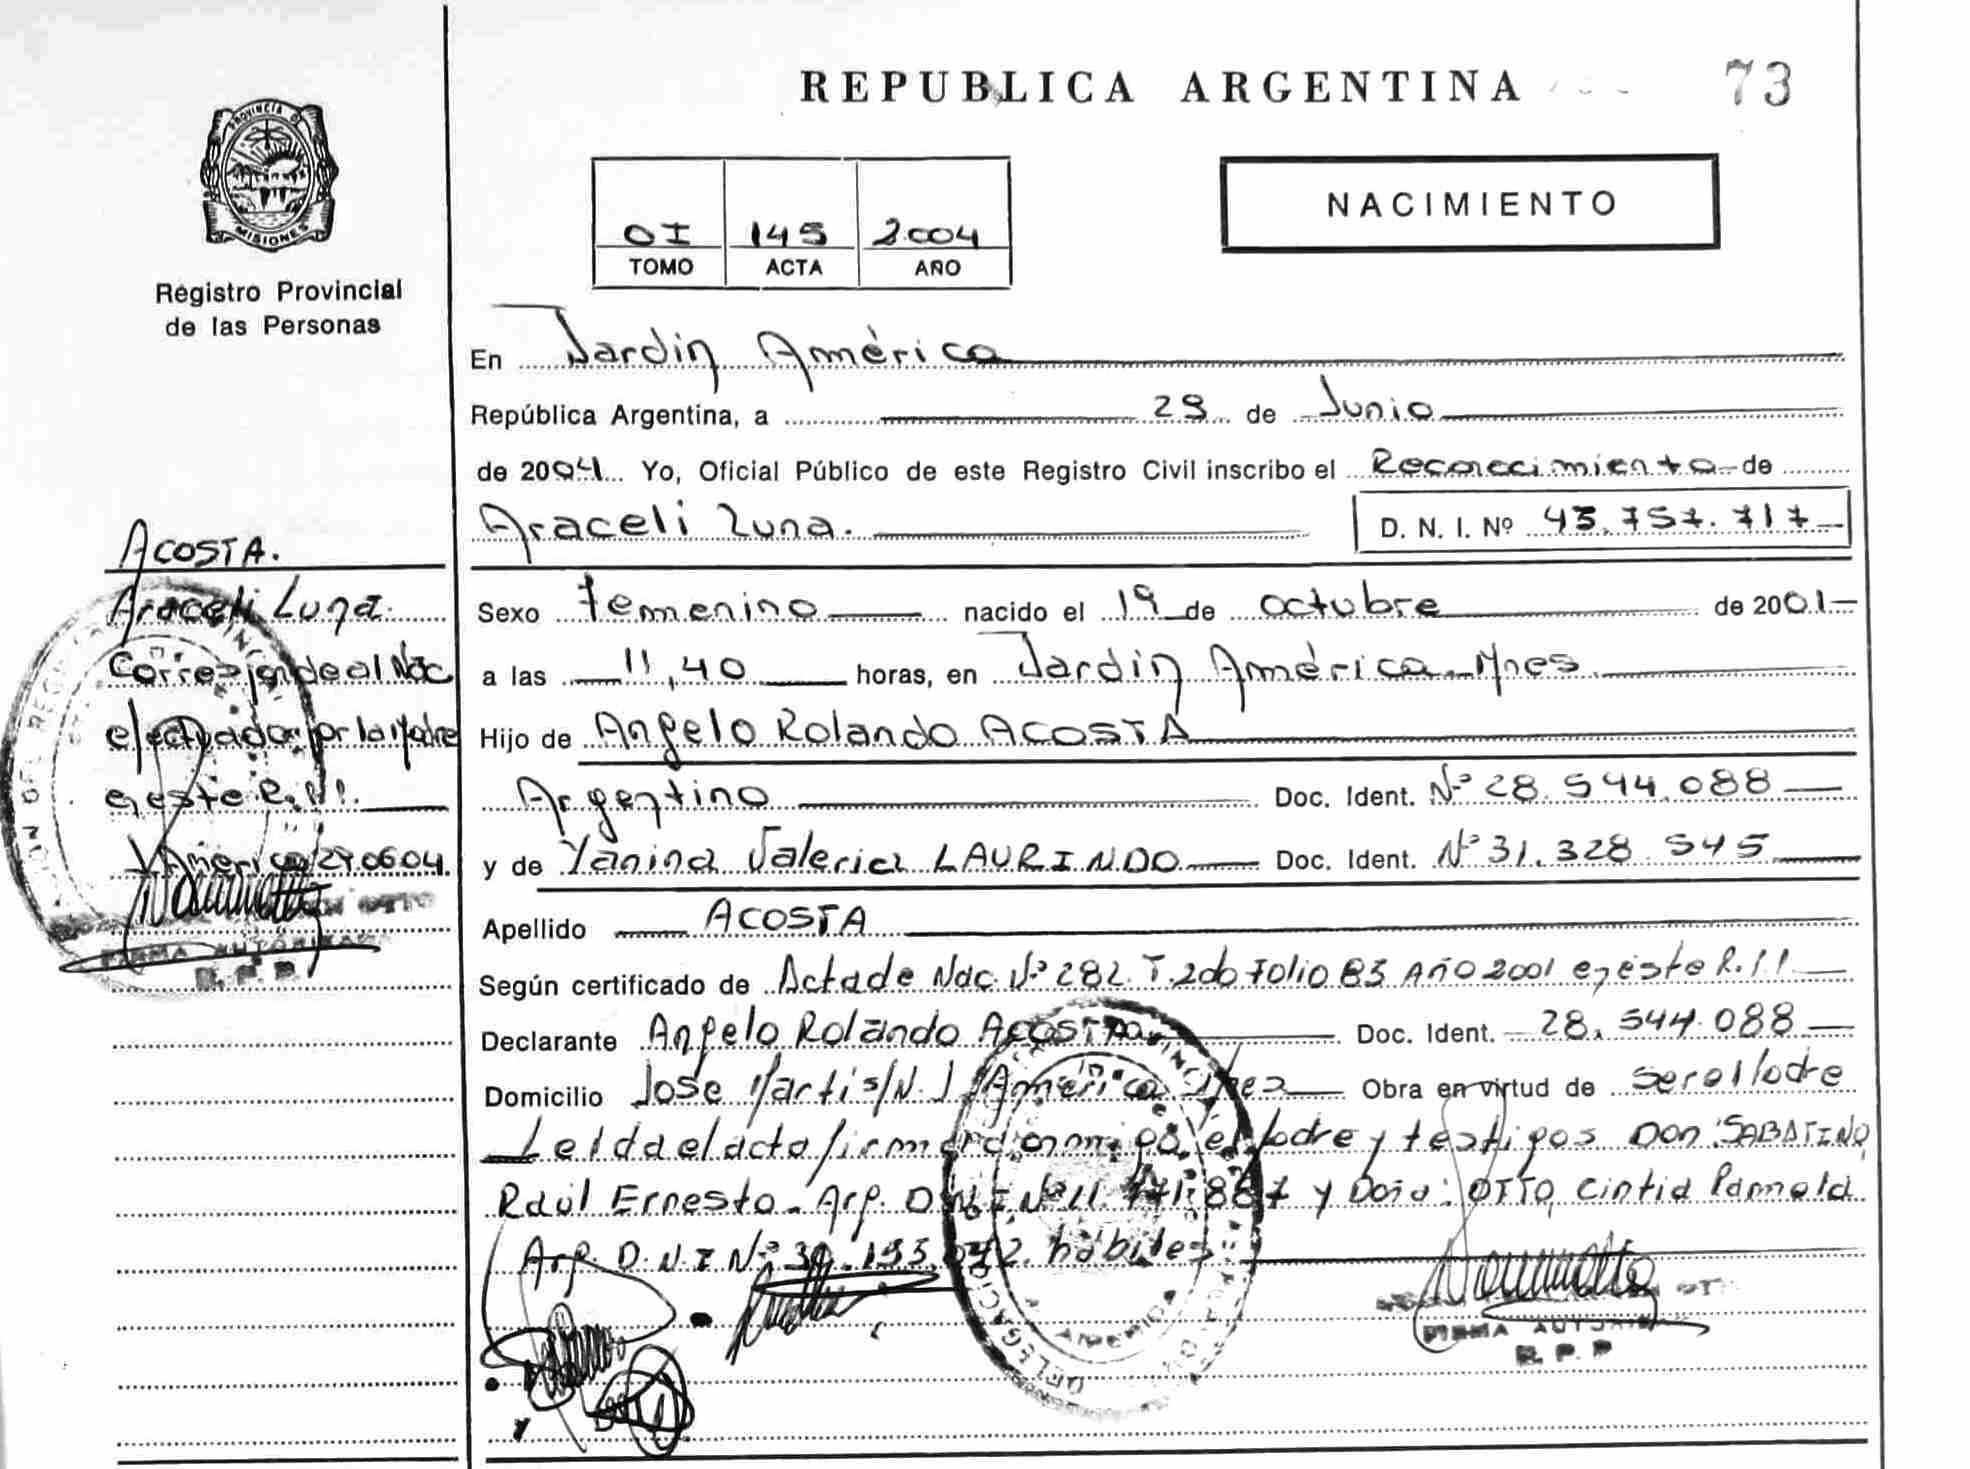 REPUBLICA ARGENTINA
73
PROVINCIA DE
MISIONES
Registro Provincial
de las Personas
OI 145 2004
TOMO ACTA AÑO
NACIMIENTO
En Jardin América
República Argentina, a 29 de Junio
de 2004 Yo, Oficial Público de este Registro Civil inscribo el Reconocimiento de
Araceli Luna.
D. N. I. Nº 43.757.717
Sexo Femenino nacido el 19 de octubre de 2001
a las 11,40 horas, en Jardin América Mnes
Hijo de Angelo Rolando ACOSTA
Argentino Doc. Ident. Nº 28.544.088
y de Yanina Valeria LAURINDO Doc. Ident. Nº 31.328.545
Apellido ACOSTA
Según certificado de Acta de Nac. Nº 282 T. 2do Folio 83 Año 2001 en este R.
Declarante Angelo Rolando ACOSTA Doc. Ident. 28.544.088
Domicilio José Marti s/N. J. América Mnes Obra en virtud de ser el Padre
Leida el acta firman conmigo el Padre y testigos Don SABATINO,
Raúl Ernesto. Arg. D.N.I. Nº 11.771.887 y Doña: OTTO, Cintia Pamela
Arg. D.N.I Nº hábiles
ACOSTA.
Araceli Luna
Corresponde al Nac
efectuado por la Madre
en este R.
J América 29.06.04.
FIRMA AUTORIZADA
R. P. P.
FIRMA AUTORIZ
R. P. P
DELEGACION